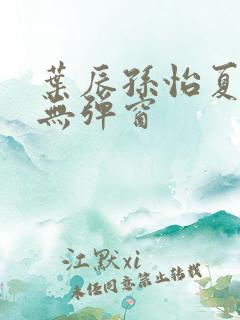 葉辰孫怡夏
無彈窗
江默xi
未经同意禁止转载